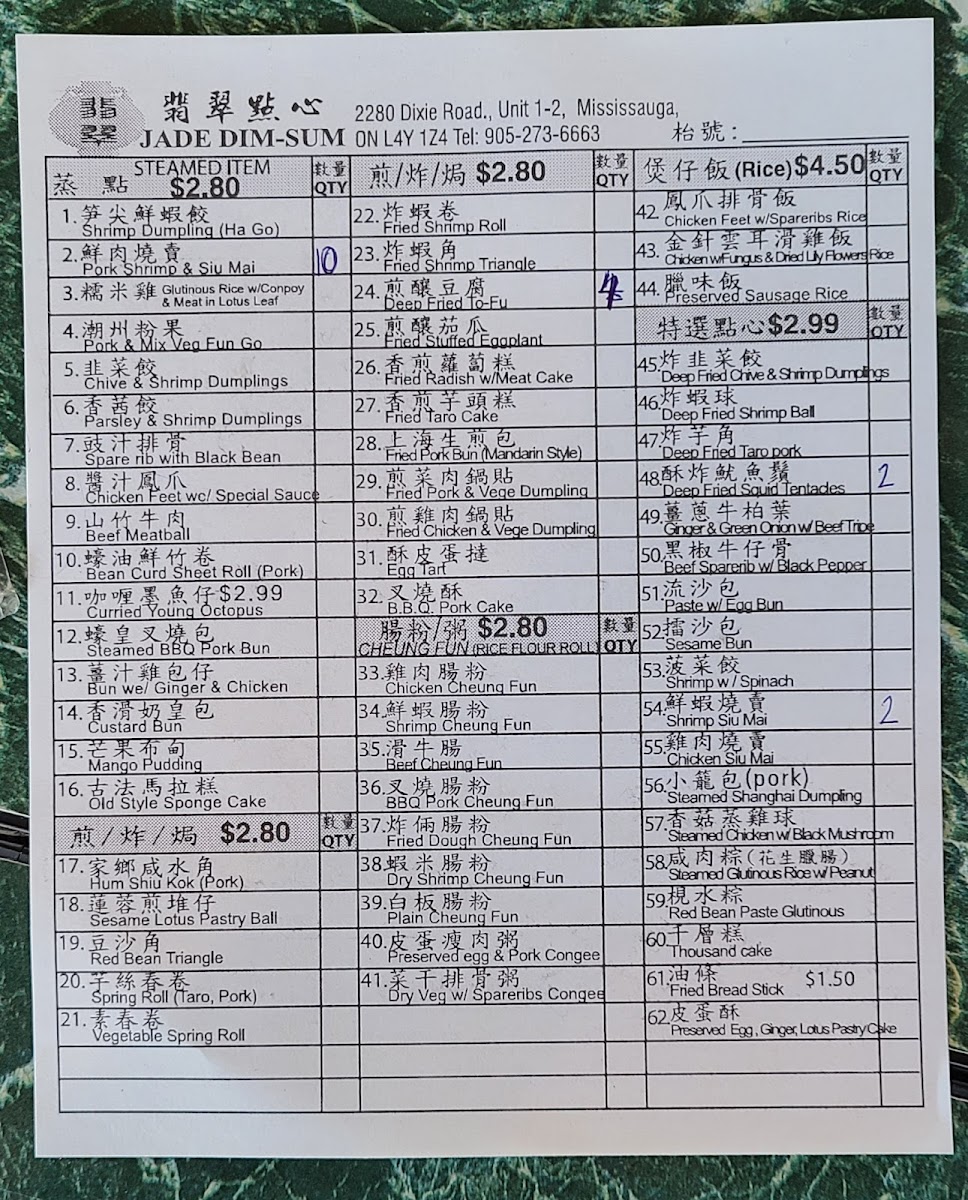 翡翠
翡翠點心
JADE DIM-SUM
2280 Dixie Road., Unit 1-2, Mississauga,
ON L4Y 1Z4 Tel: 905-273-6663
枱號:
STEAMED ITEM
蒸 點 $2.80
數量
QTY
1.笋尖鮮蝦餃
Shrimp Dumpling (Ha Go)
2.鮮肉燒賣
Pork Shrimp & Siu Mai
10
3.糯米雞 Glutinous Rice w/Conpoy
& Meat in Lotus Leaf
4.潮州粉果
Pork & Mix Veg Fun Go
5.韭菜餃
Chive & Shrimp Dumplings
6.香茜餃
Parsley & Shrimp Dumplings
7.豉汁排骨
Spare rib with Black Bean
8.醬汁鳳爪
Chicken Feet wc/ Special Sauce
9.山竹牛肉
Beef Meatball
10.蠔油鮮竹卷
Bean Curd Sheet Roll (Pork)
11.咖喱墨魚仔$2.99
Curried Young Octopus
12.蠔皇叉燒包
Steamed BBQ Pork Bun
13.薑汁雞包仔
Bun we/ Ginger & Chicken
14.香滑奶皇包
Custard Bun
15.芒果布甸
Mango Pudding
16.古法馬拉糕
Old Style Sponge Cake
煎/炸/焗 $2.80
數量
QTY
17.家鄉咸水角
Hum Shiu Kok (Pork)
18.蓮蓉煎堆仔
Sesame Lotus Pastry Ball
19.豆沙角
Red Bean Triangle
20.芋絲春卷
Spring Roll (Taro, Pork)
21.素春卷
Vegetable Spring Roll
煎/炸/焗 $2.80
數量
QTY
22.炸蝦卷
Fried Shrimp Roll
23.炸蝦角
Fried Shrimp Triangle
24.煎釀豆腐
Deep Fried To-Fu
4
25.煎釀茄瓜
Fried Stuffed Eggplant
26.香煎蘿蔔糕
Fried Radish w/Meat Cake
27.香煎芋頭糕
Fried Taro Cake
28.上海生煎包
Fried Pork Bun (Mandarin Style)
29.煎菜肉鍋貼
Fried Pork & Vege Dumpling
30.煎雞肉鍋貼
Fried Chicken & Vege Dumpling
31.酥皮蛋撻
Egg Tart
32.叉燒酥
B.B.Q. Pork Cake
腸粉/粥 $2.80
CHEUNG FUN (RICE FLOUR ROLL)
數量
QTY
33.雞肉腸粉
Chicken Cheung Fun
34.鮮蝦腸粉
Shrimp Cheung Fun
35.滑牛腸
Beef Cheung Fun
36.叉燒腸粉
BBQ Pork Cheung Fun
37.炸倆腸粉
Fried Dough Cheung Fun
38.蝦米腸粉
Dry Shrimp Cheung Fun
39.白板腸粉
Plain Cheung Fun
40.皮蛋瘦肉粥
Preserved egg & Pork Congee
41.菜干排骨粥
Dry Veg w/ Spareribs Congee
煲仔飯(Rice)$4.50
數量
QTY
42.鳳爪排骨飯
Chicken Feet w/Spareribs Rice
43.金針雲耳滑雞飯
Chicken w/Fungus & Dried Lily Flowers Rice
44.臘味飯
Preserved Sausage Rice
特選點心$2.99
數量
QTY
45.炸韭菜餃
Deep Fried Chive & Shrimp Dumplings
46.炸蝦球
Deep Fried Shrimp Ball
47.炸芋角
Deep Fried Taro pork
48.酥炸魷魚鬚
Deep Fried Squid Tentacles
2
49.薑蔥牛柏葉
Ginger & Green Onion w/ Beef Tripe
50.黑椒牛仔骨
Beef Sparerib w/ Black Pepper
51.流沙包
Paste w/ Egg Bun
52.擂沙包
Sesame Bun
53.菠菜餃
Shrimp w/ Spinach
54.鮮蝦燒賣
Shrimp Siu Mai
2
55.雞肉燒賣
Chicken Siu Mai
56.小籠包(pork)
Steamed Shanghai Dumpling
57.香菇蒸雞球
Steamed Chicken w/ Black Mushroom
58.咸肉粽(花生臘腸)
Steamed Glutinous Rice w/ Peanut
59.梘水粽
Red Bean Paste Glutinous
60.千層糕
Thousand cake
61.油條 $1.50
Fried Bread Stick
62.皮蛋酥
Preserved Egg, Ginger, Lotus Pastry Cake